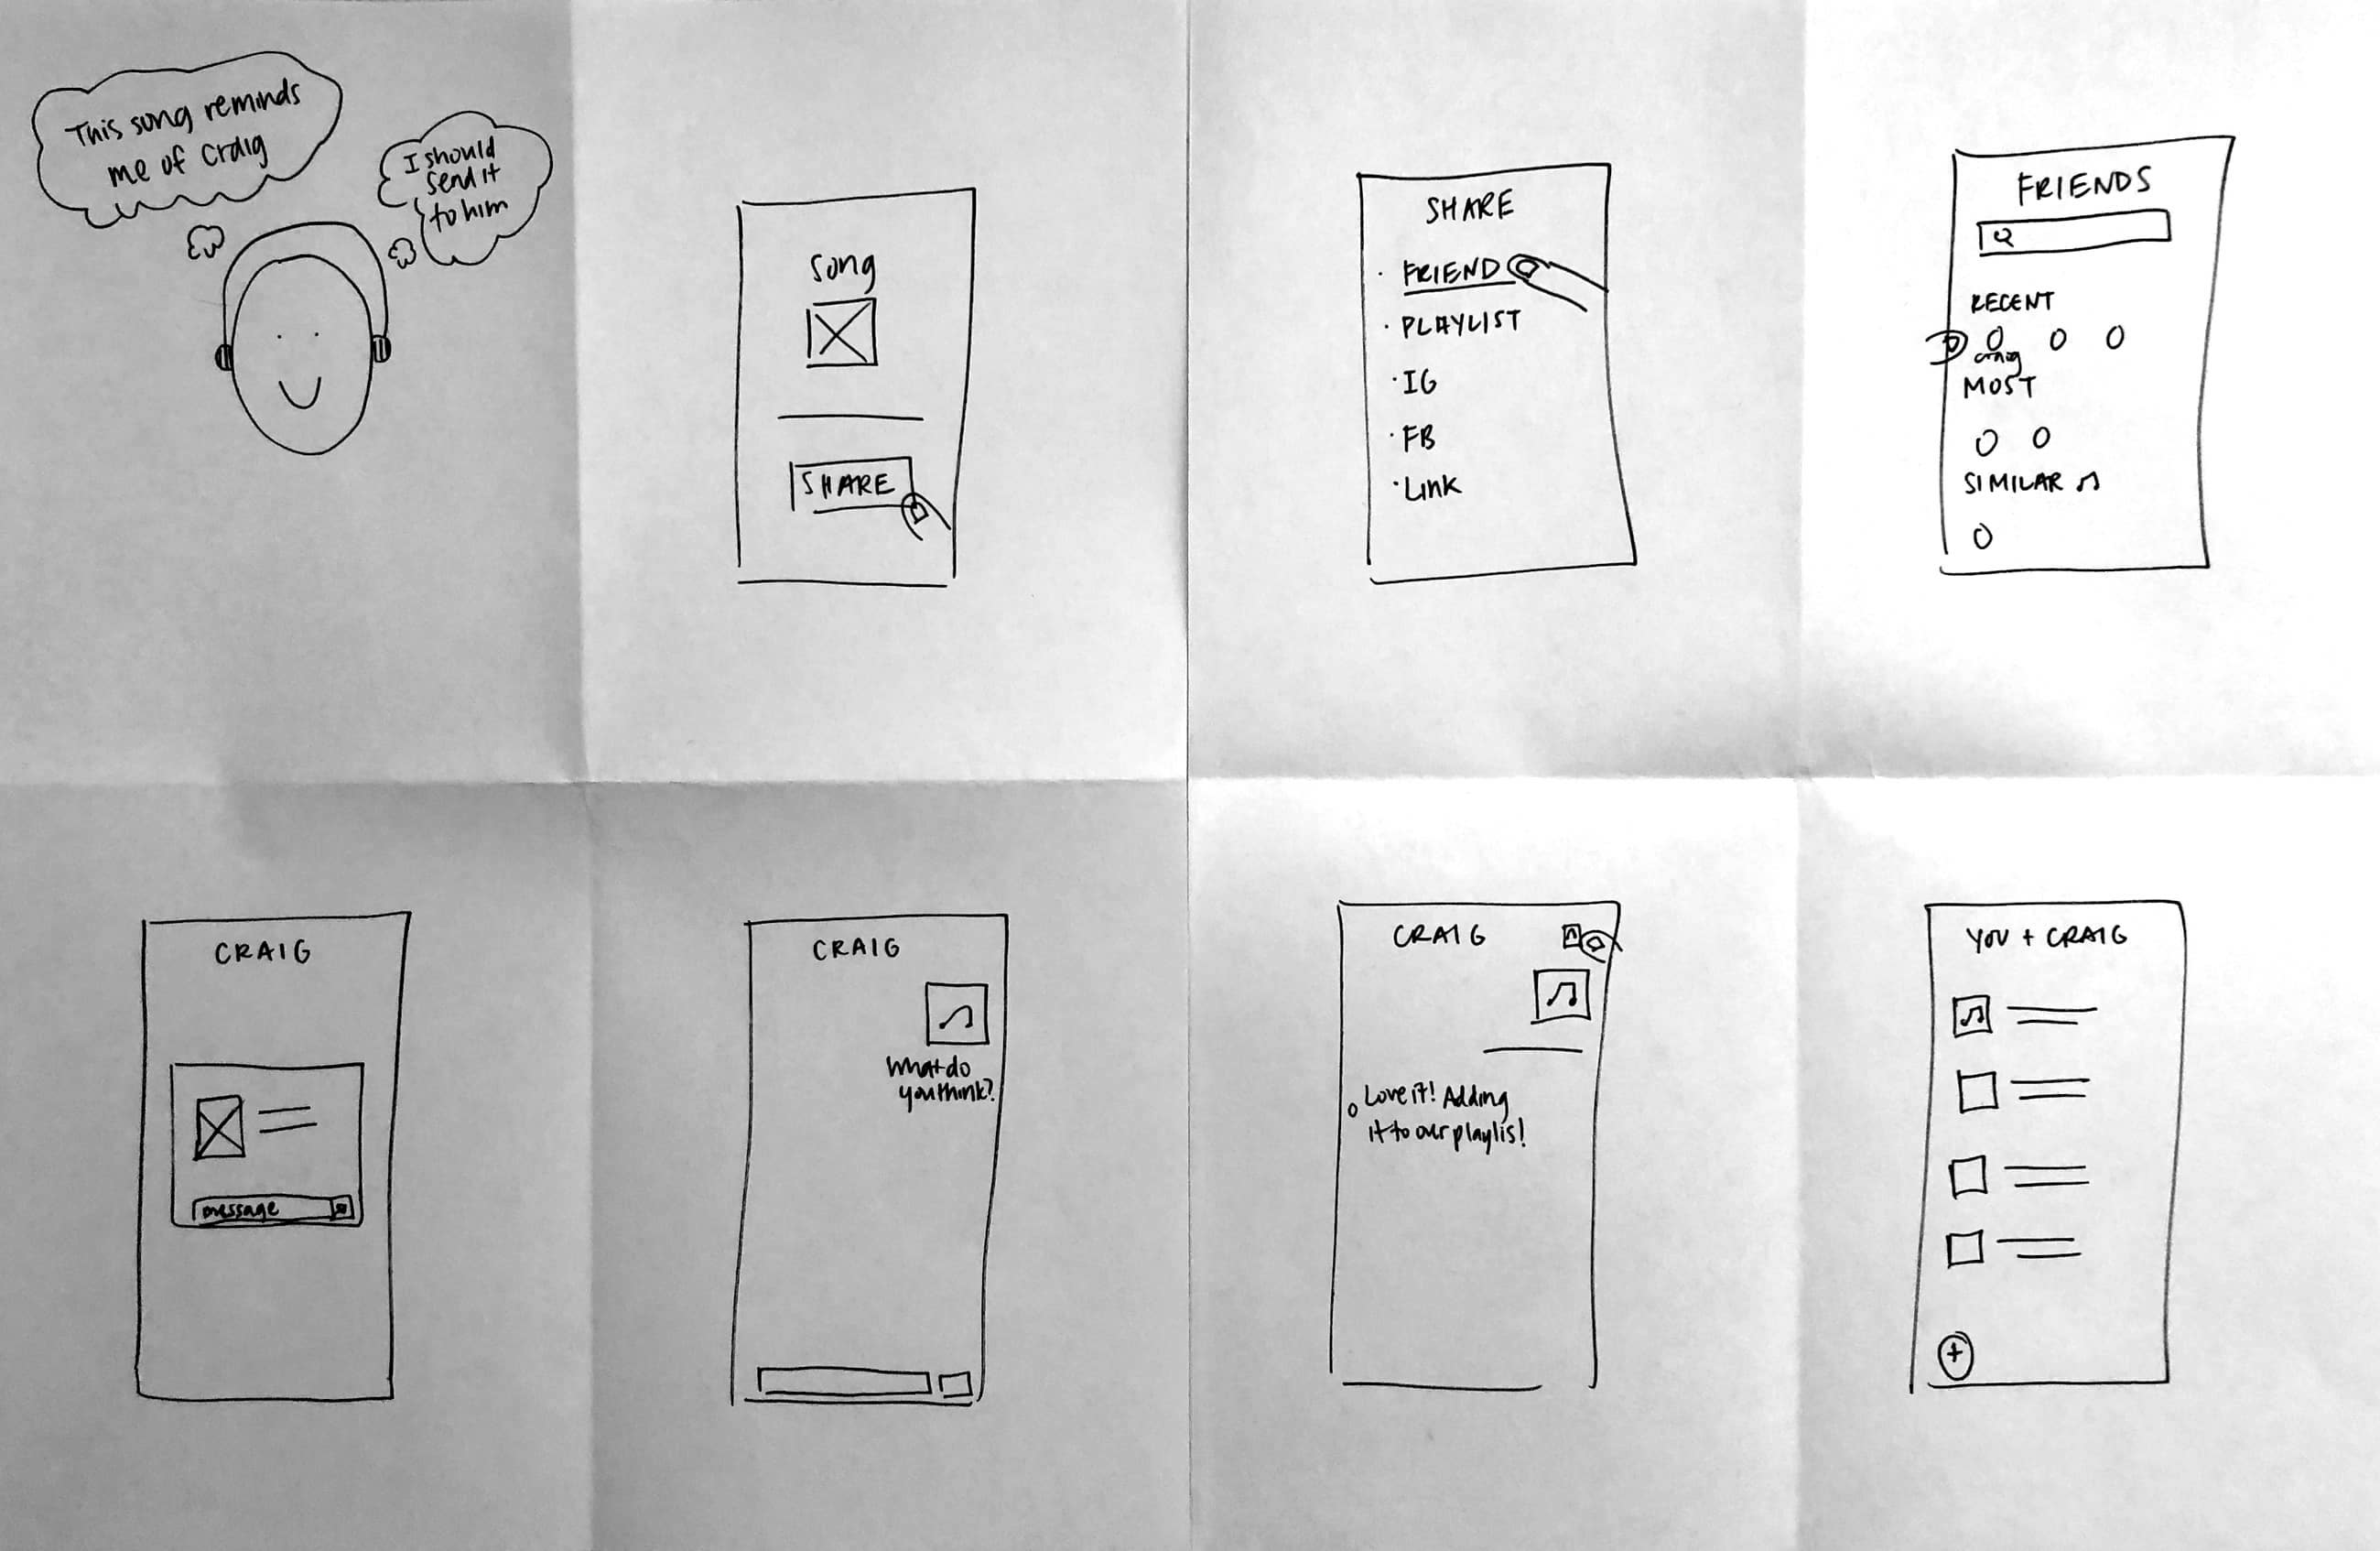 This song reminds
me of Craig
I should
send it
to him
song
SHARE
SHARE
· FRIEND
· PLAYLIST
· IG
· FB
· Link
FRIENDS
RECENT
craig
MOST
SIMILAR ♫
CRAIG
message
CRAIG
What do
you think?
CRAIG
Love it! Adding
it to our playlis!
YOU + CRAIG
+